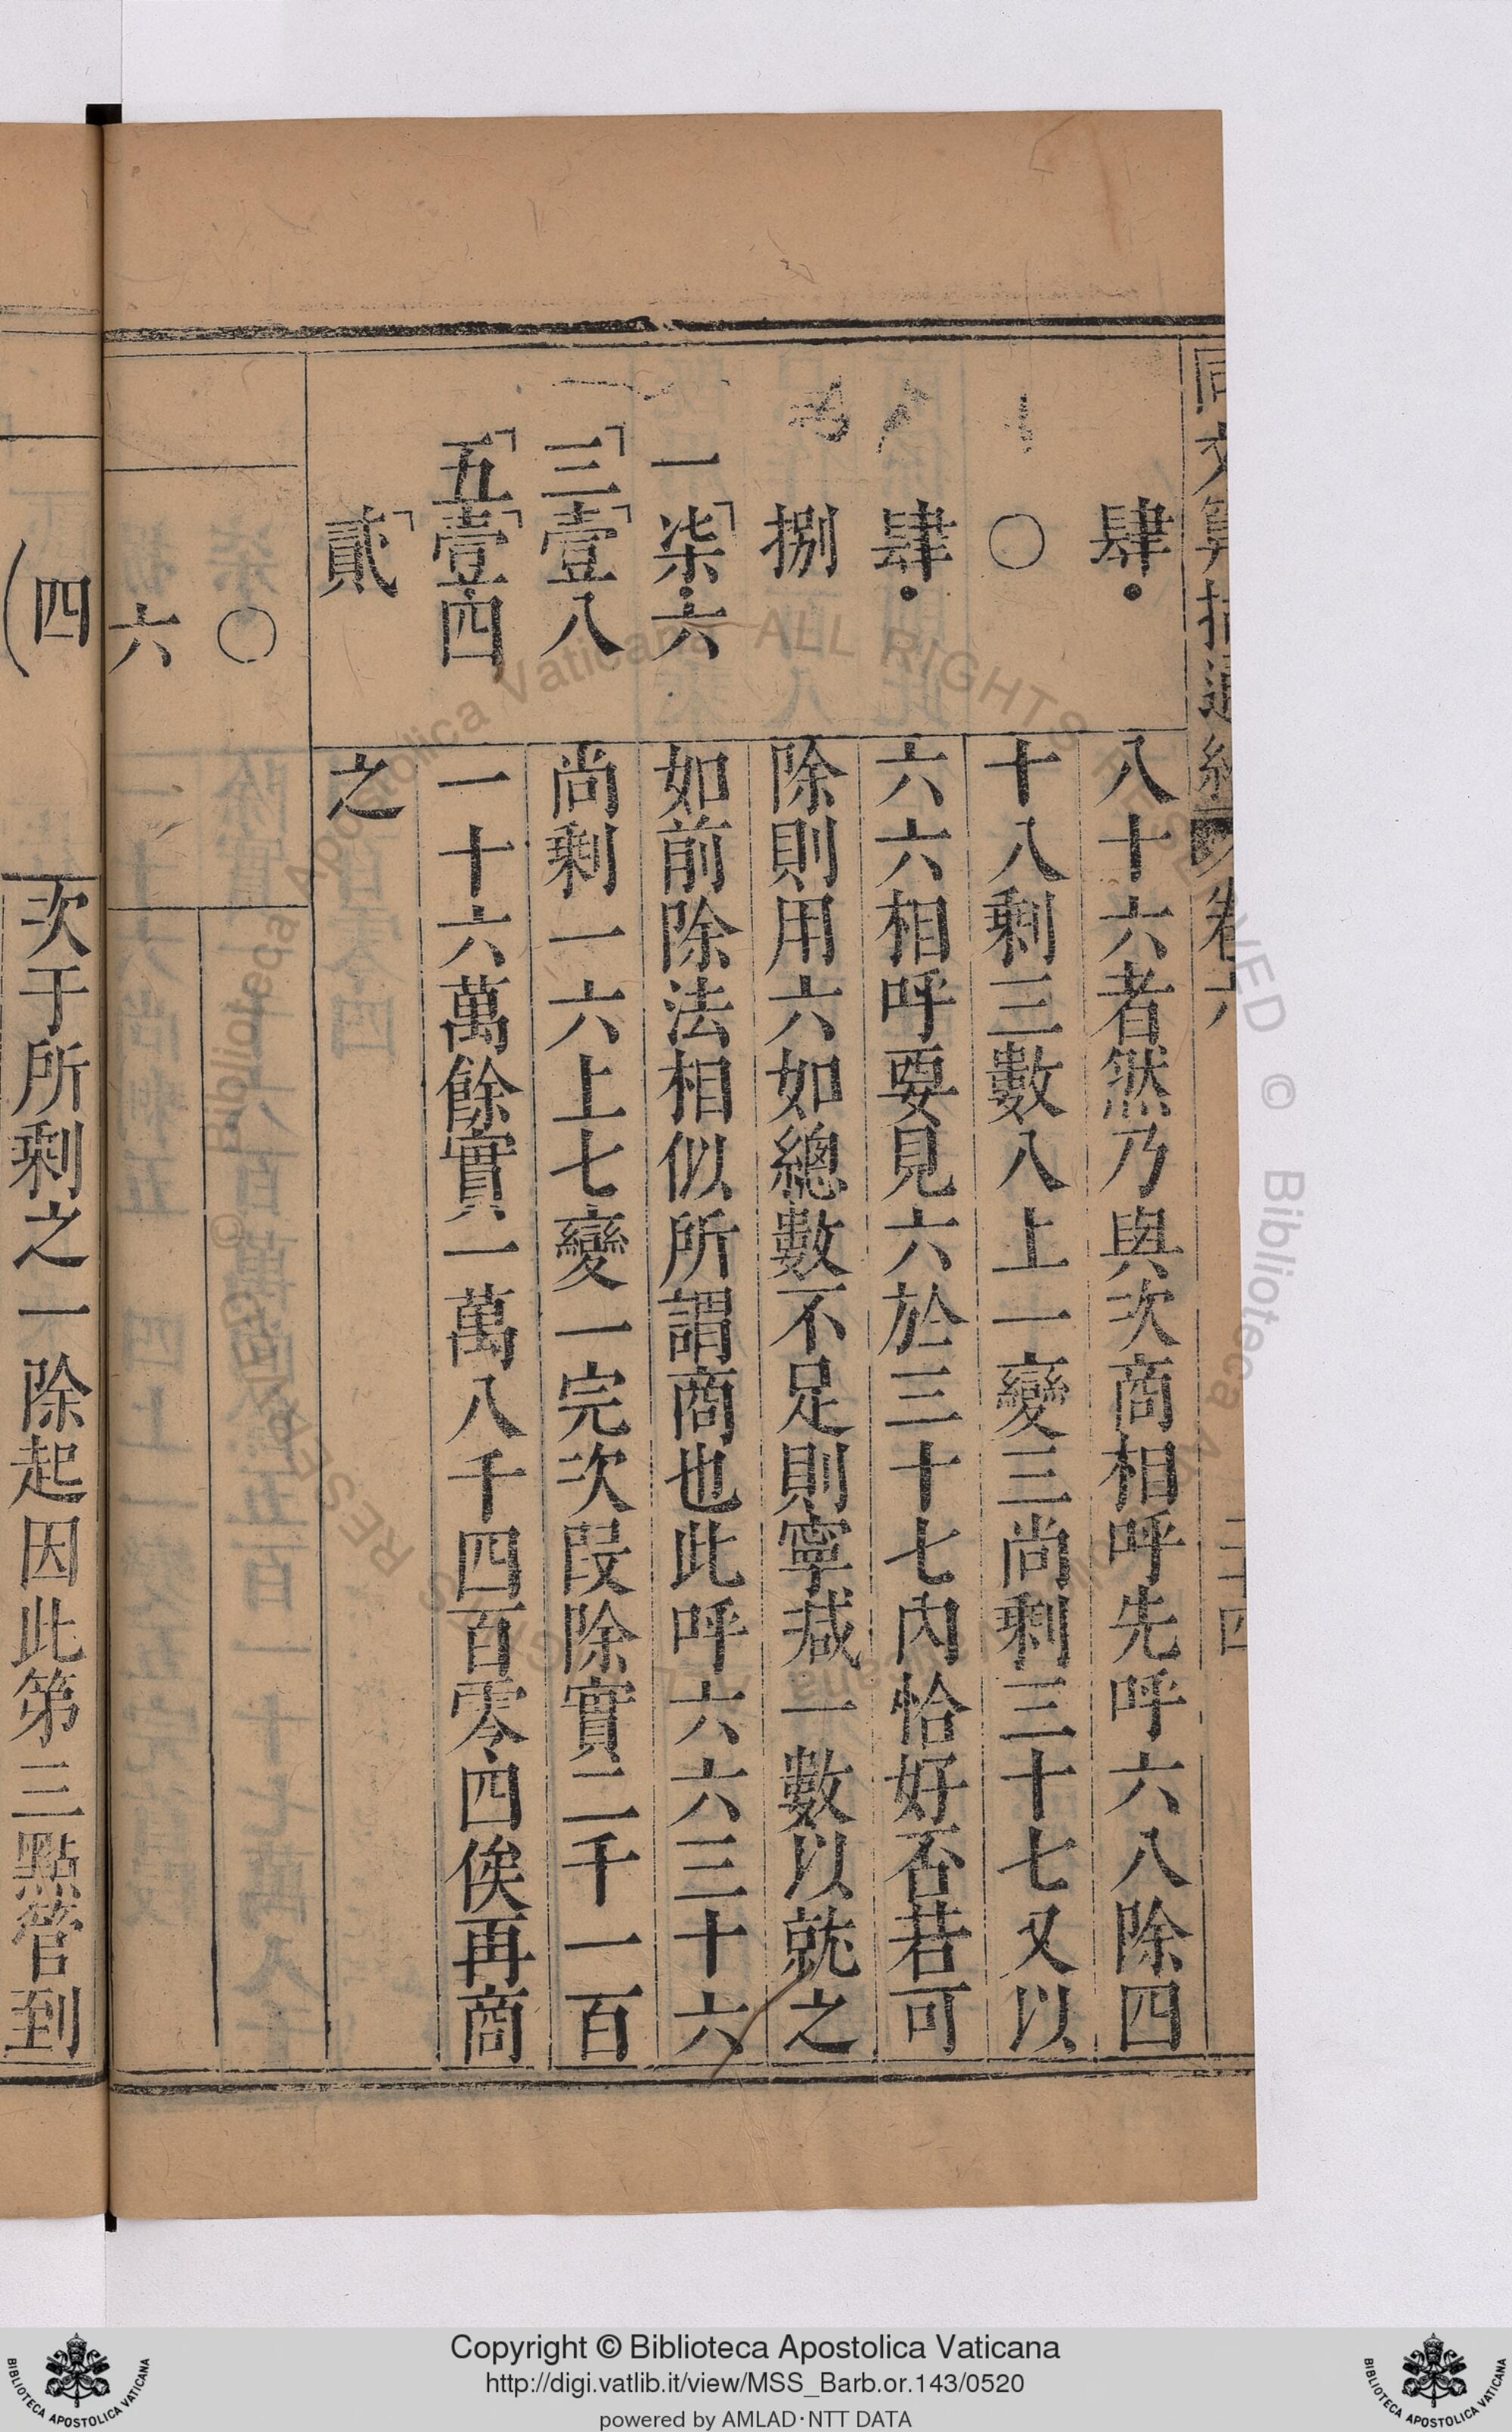 同文算指通編 卷六 二十四
肆
○
肆
捌
一柒六
三壹八
五壹四
貳
八十六者然乃與次商相呼先呼六八除四
十八剩三數八上一變三尚剩三十七又以
六六相呼要見六於三十七內恰好否若可
除則用六如總數不足則寧减一數以就之
如前除法相似所謂商也此呼六六三十六
尚剩一六上七變一完次段除實二千一百
一十六萬餘實一萬八千四百零四俟再商
之
○
六
四
次于所剩之一除起因此第三點管到
Copyright © Biblioteca Apostolica Vaticana
http://digi.vatlib.it/view/MSS_Barb.or.143/0520
powered by AMLAD·NTT DATA
BIBLIOTECA APOSTOLICA VATICANA
BIBLIOTECA APOSTOLICA VATICANA